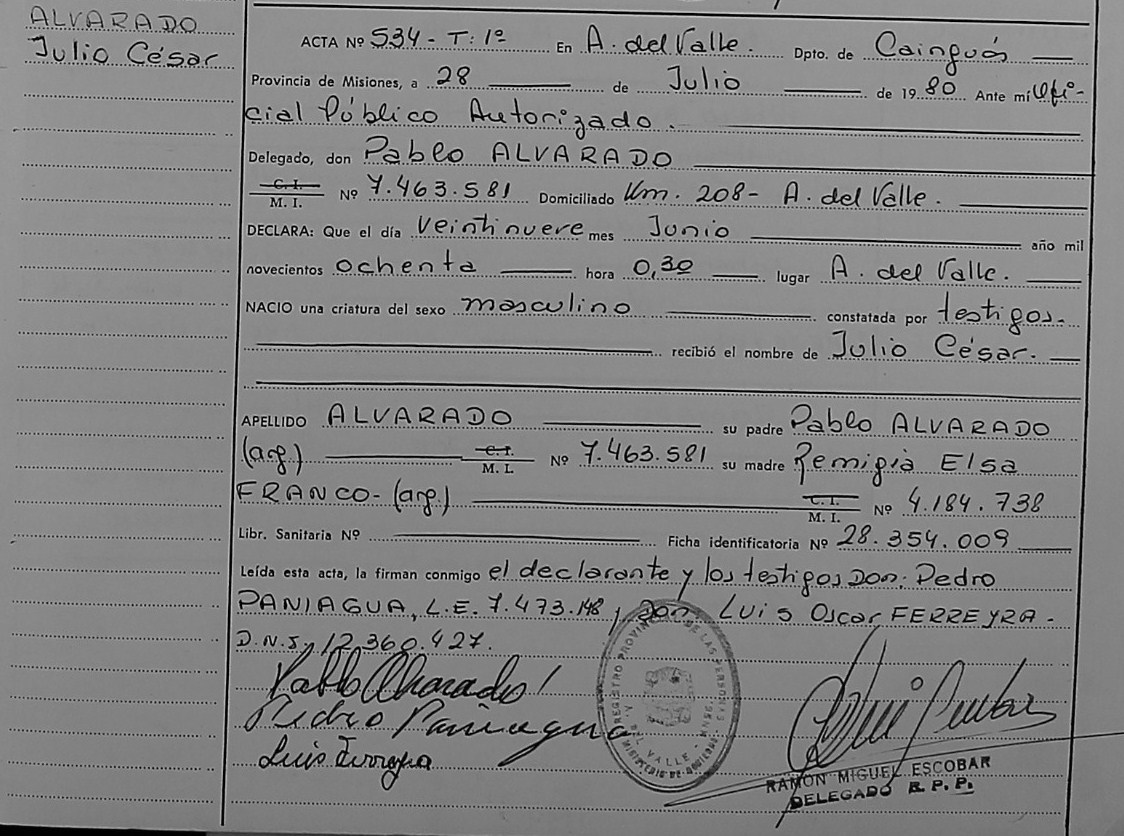 ALVARADO
Julio César
ACTA Nº 534 - T: 1º En A. del Valle. Dpto. de Cainguás
Provincia de Misiones, a 28 de Julio de 1980 Ante mí Ofi-
cial Público Autorizado.
Delegado, don Pablo ALVARADO
C. I.
M. I. Nº 7.463.581 Domiciliado Km. 208 - A. del Valle.
DECLARA: Que el día Veintinueve mes Junio año mil
novecientos ochenta hora 0,30 lugar A. del Valle.
NACIO una criatura del sexo masculino constatada por testigos.
recibió el nombre de Julio César.
APELLIDO ALVARADO su padre Pablo ALVARADO
(arg.) C. I. M. I. Nº 7.463.581 su madre Remigia Elsa
FRANCO - (arg.) C. I. M. I. Nº 4.184.738
Libr. Sanitaria Nº Ficha identificatoria Nº 28.354.009
Leída esta acta, la firman conmigo el declarante y los testigos Don: Pedro
PANIAGUA, L.E. 7.473.148 y Don Luis Oscar FERREYRA -
D.N.I. 12.360.427.
Pablo Alvarado
Pedro Paniagua
Luis Ferreyra
REGISTRO PROVINCIAL DE LAS PERSONAS
A. DEL VALLE - MISIONES
MINISTERIO DE GOBIERNO
RAMON MIGUEL ESCOBAR
DELEGADO R. P. P.